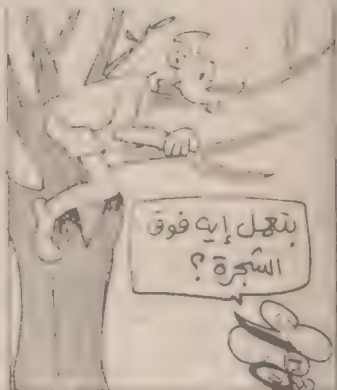 بتعمل إيه فوق
الشجرة ؟